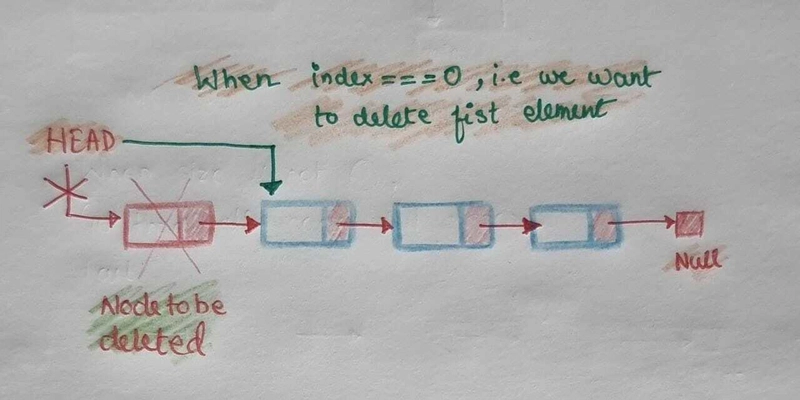 When index===0, i.e we want
to delete fist element
HEAD
Null
Node to be
deleted